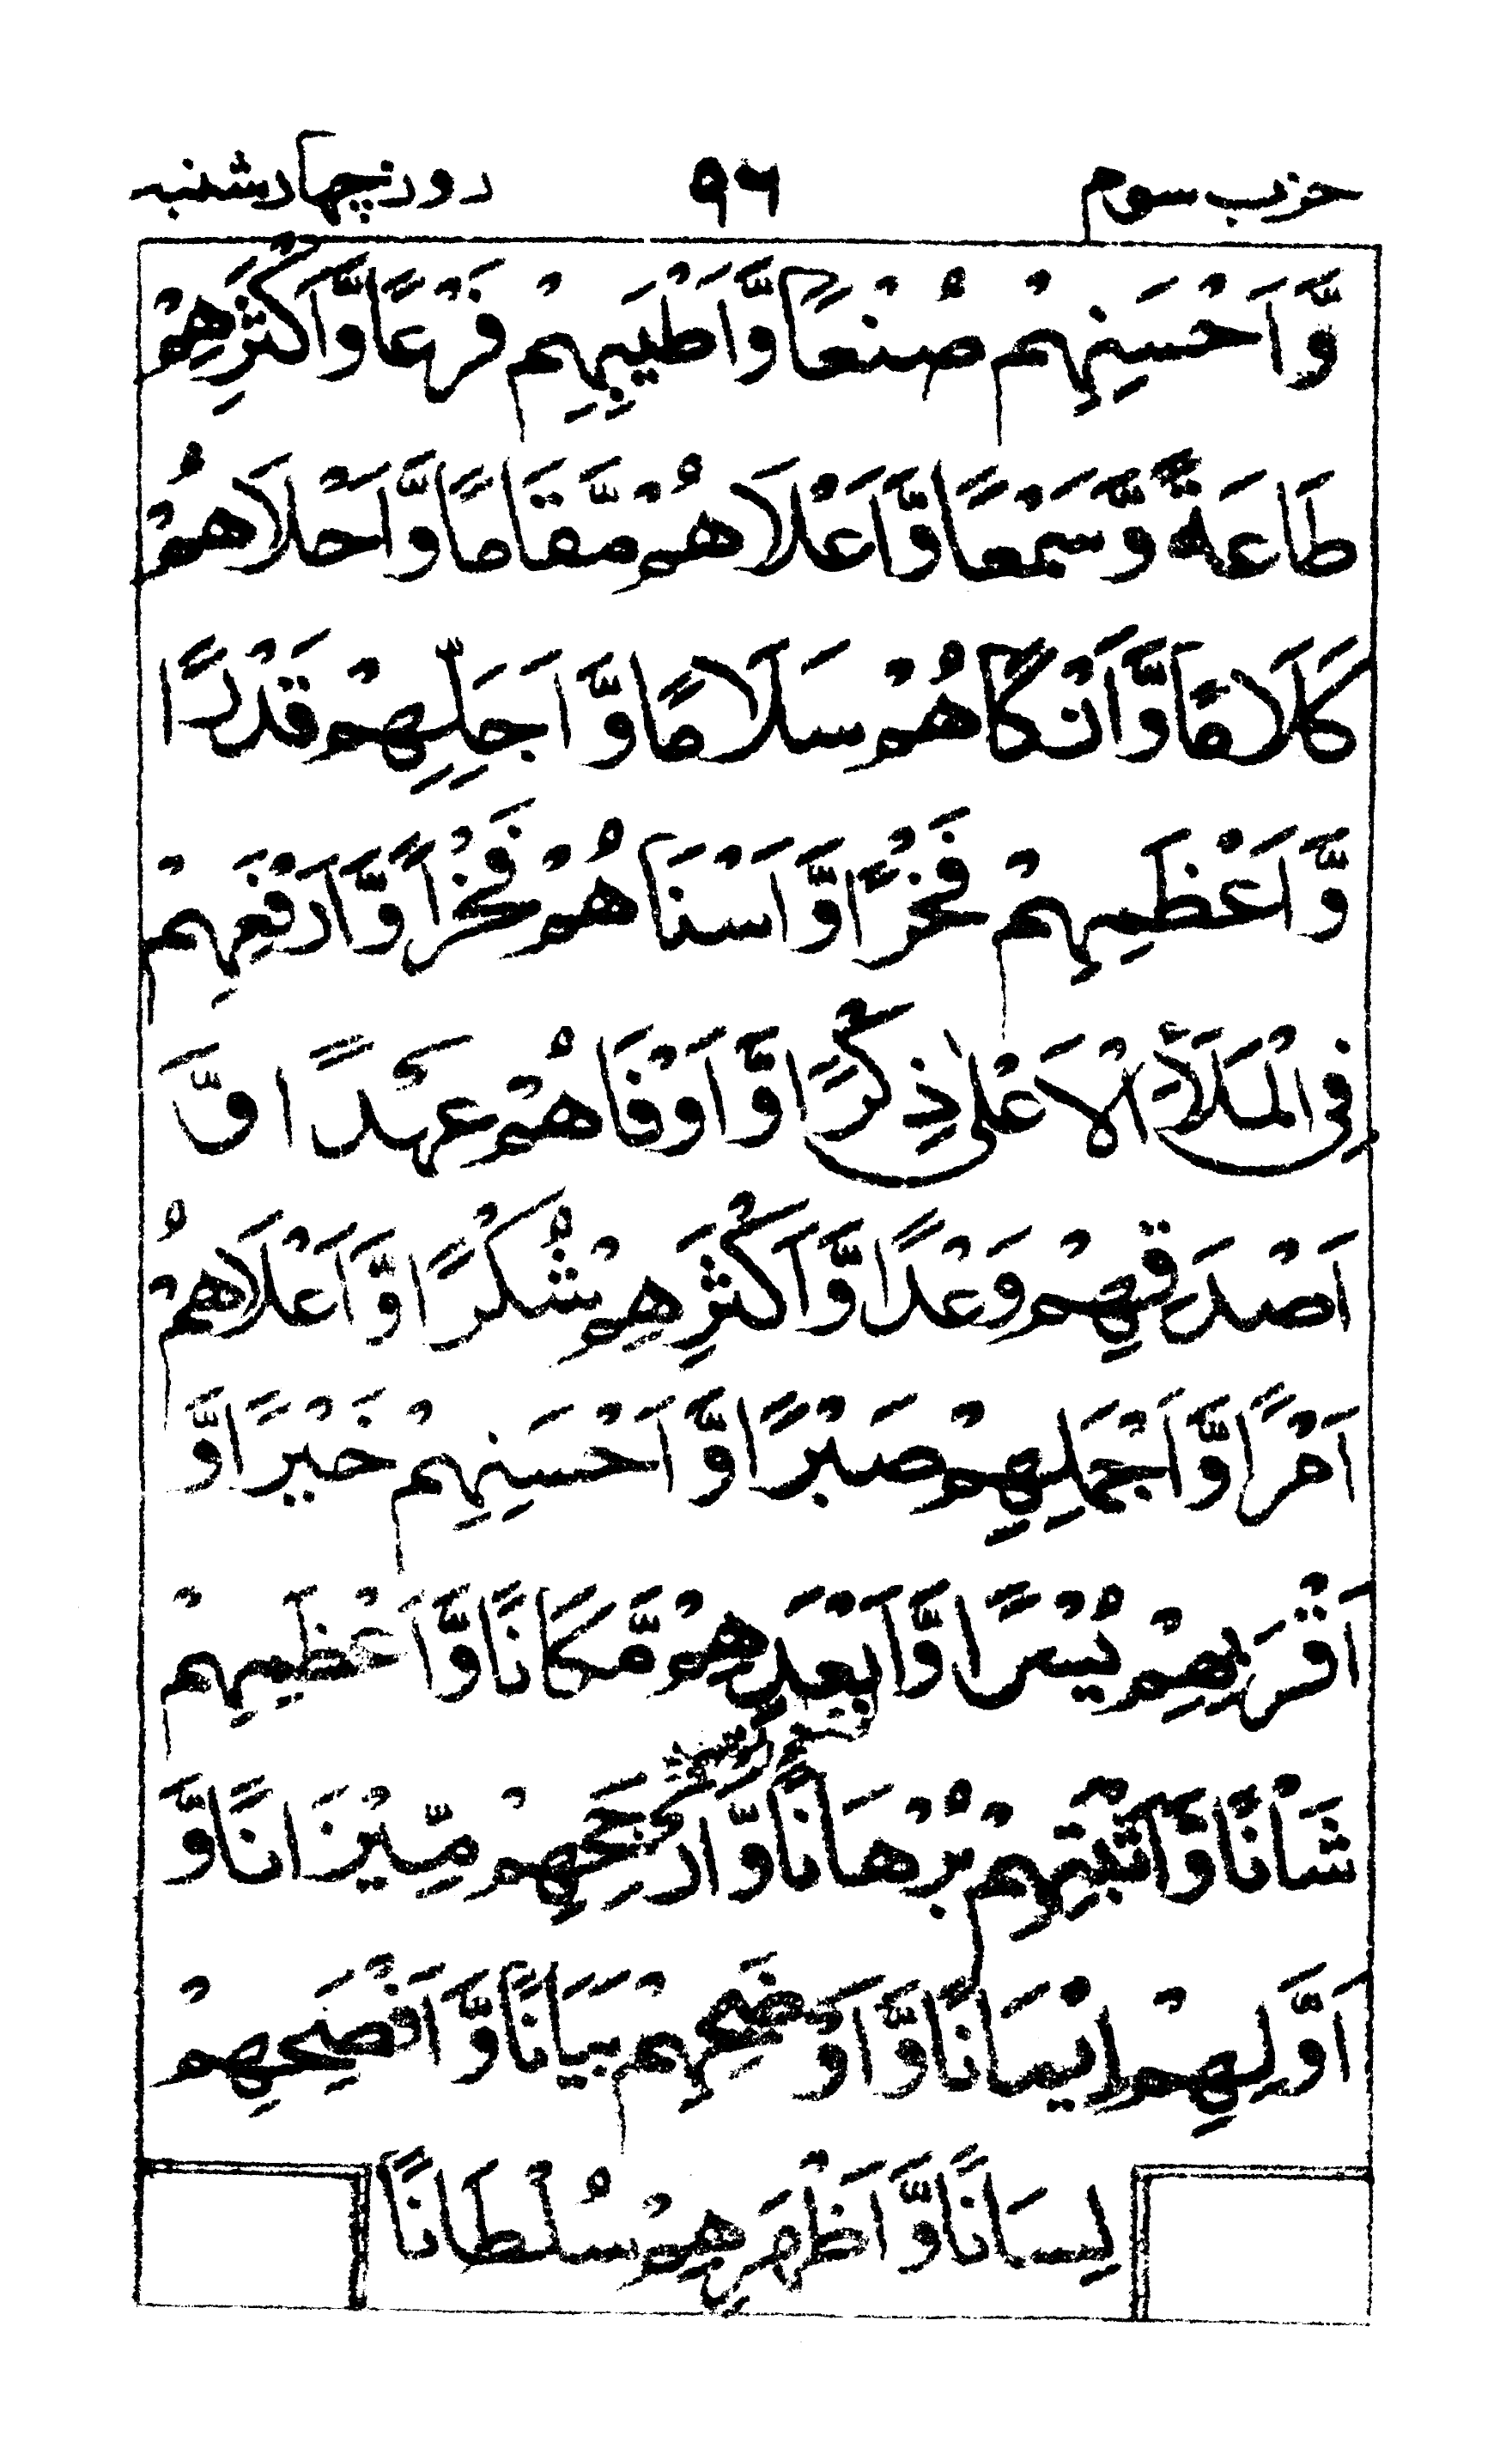 حزب سوم ٩٦ روز چهارشنبه
وَّاَحْسَنِهِمْ صُنْعًا وَّاَطْيَبِهِمْ فَرْعًا وَّاَكْثَرِهِمْ
طَاعَةً وَّسَمْعًا وَّاَعْلَاهُمْ مَّقَامًا وَّاَحْلَاهُمْ
كَلَامًا وَّاَزْكَاهُمْ سَلَامًا وَّاَجَلِّهِمْ قَدْرًا
وَّاَعْظَمِهِمْ فَخْرًا وَّاَسْنَاهُمْ فَخْرًا وَّاَرْفَعِهِمْ
فِی الْمَلَأِ الْاَعْلٰی ذِكْرًا وَّاَوْفَاهُمْ عَهْدًا وَّ
اَصْدَقِهِمْ وَعْدًا وَّاَكْثَرِهِمْ شُكْرًا وَّاَعْلَاهُمْ
اَمْرًا وَّاَجْمَلِهِمْ صَبْرًا وَّاَحْسَنِهِمْ خَيْرًا وَّ
اَقْرَبِهِمْ يُسْرًا وَّاَبْعَدِهِمْ مَّكَانًا وَّاَعْظَمِهِمْ
شَانًا وَّاَثْبَتِهِمْ بُرْهَانًا وَّاَرْجَحِهِمْ مِّيْزَانًا وَّ
اَوَّلِهِمْ اِيْمَانًا وَّاَوْضَحِهِمْ بَيَانًا وَّاَفْصَحِهِمْ
لِسَانًا وَّاَظْهَرِهِمْ سُلْطَانًا